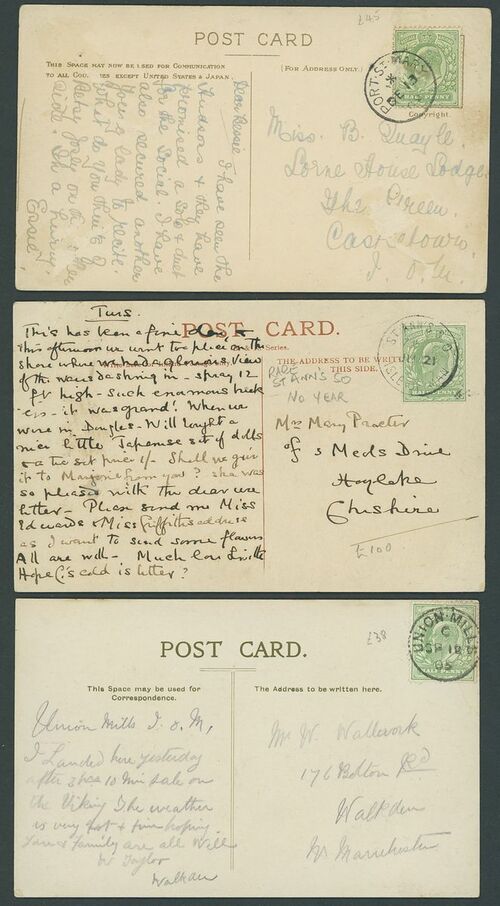 £45
POST CARD
THIS SPACE MAY NOW BE USED FOR COMMUNICATION
TO ALL COU ES EXCEPT UNITED STATES & JAPAN.
(FOR ADDRESS ONLY.)
HALF PENNY
PORT-ST-MARY
DE 13
Copyright.
Dear Bessie I have seen the
Hudsons & they have
promised a Solo & duet
for the Social I have
also secured another
young lady to recite
What do you think of
In a hurry
Essie
Miss. B. Quayle.
Lorne House Lodge
The Green
Castletown
I. o. M.
Tues.
POST CARD.
Series.
This has been a fine day, &
this afternoon we went to place on the
shore where we had a glorious view
of the waves dashing in - spray 12
ft high - Such enormous break
ers - it was grand! When we
were in Douglas. Will bought a
nice little Japanese set of dolls
& a tea set price 1/- Shall we give
it to Marjorie from you? She was
so pleased with the dear wee
letter - Please send me Miss
Edwards & Miss Griffiths address
as I want to send some flowers
All are well - Much love
Hope C.'s cold is better?
THE ADDRESS TO BE WRI
THIS SIDE.
ST ANN'S S.O
21
ISLE MAN
HALF PENNY
RARE
ST ANN'S SO
NO YEAR
Mrs Mary Procter
of 3 Meols Drive
Hoylake
Cheshire
£100
£38
POST CARD.
UNION-MILLS
C
SP 19
05
This Space may be used for
Correspondence.
The Address to be written here.
Union Mills I. o M,
I Landed here yesterday
after 3 hrs 10 Min sale on
the Viking The weather
is very hot & fine hoping
you & Family are all Well
W Taylor
Walkden
Mr W. Wallwork
176 Bolton Rd
Walkden
Nr Manchester